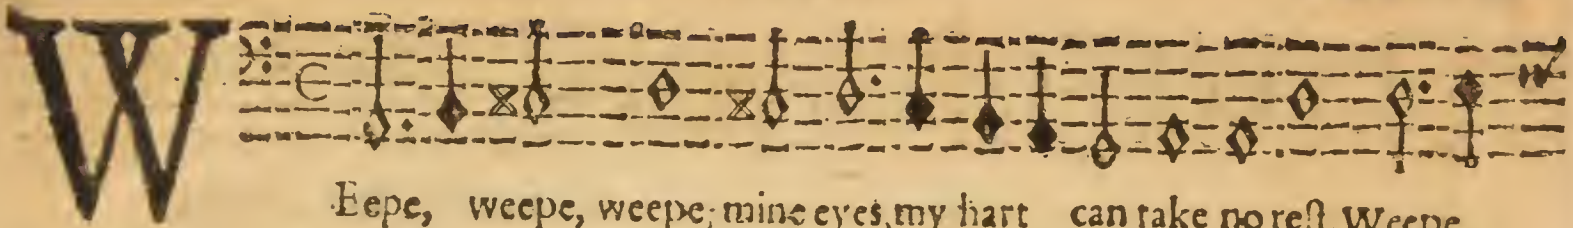 WEepe, weepe, weepe, mine eyes, my hart can take no rest, Weepe